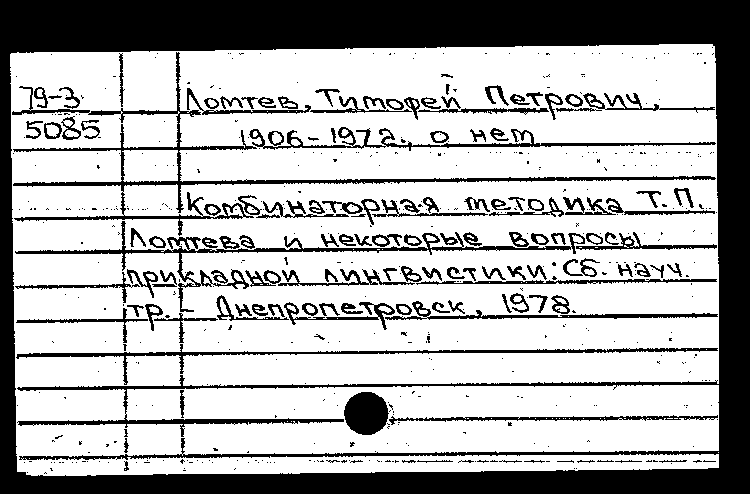 79-3
5085
Ломтев, Тимофей Петрович,
1906-1972, о нем
Комбинаторная методика Т.П.
Ломтева и некоторые вопросы
прикладной лингвистики: Сб. науч.
тр. - Днепропетровск, 1978.